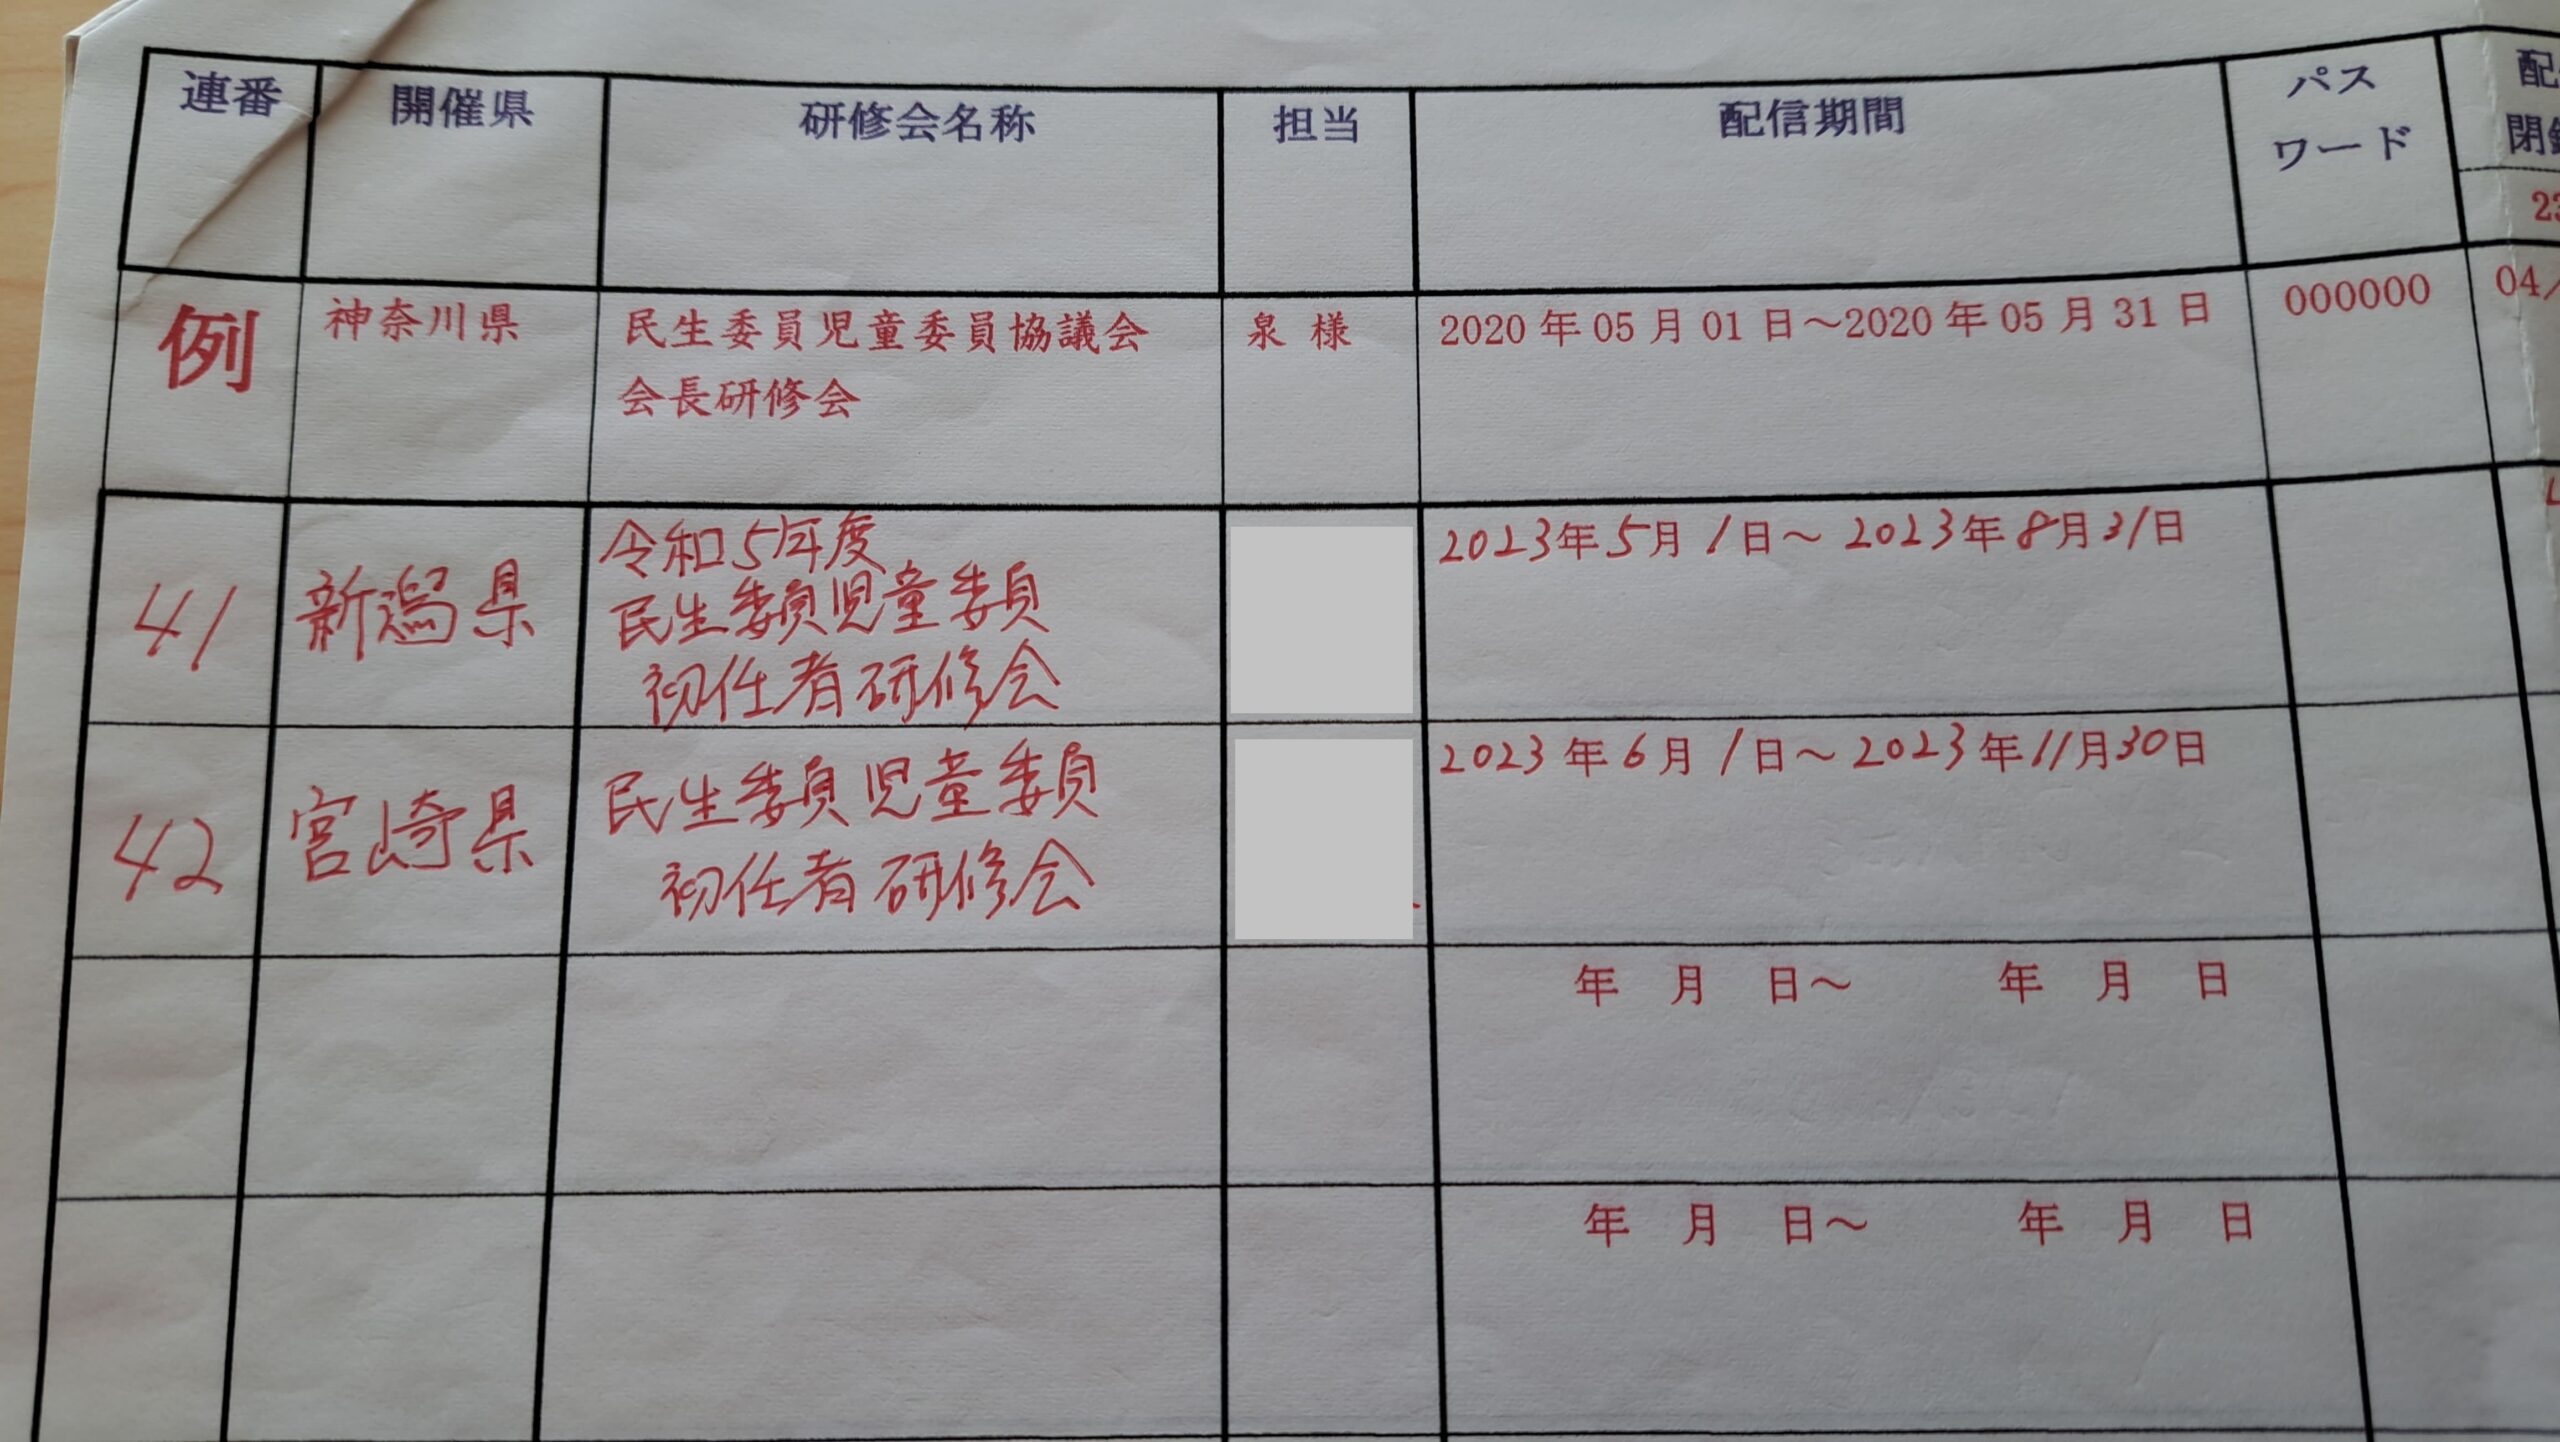 連番 開催県 研修会名称 担当 配信期間 パス
ワード
例 神奈川県 民生委員児童委員協議会 泉 様 2020 年 05 月 01 日～2020 年 05 月 31 日 000000 04/
会長研修会
41 新潟県 令和5年度 2023年5月1日～2023年8月31日
民生委員児童委員
初任者研修会
42 宮崎県 民生委員児童委員 2023年6月1日～2023年11月30日
初任者研修会
年 月 日～ 年 月 日
年 月 日～ 年 月 日